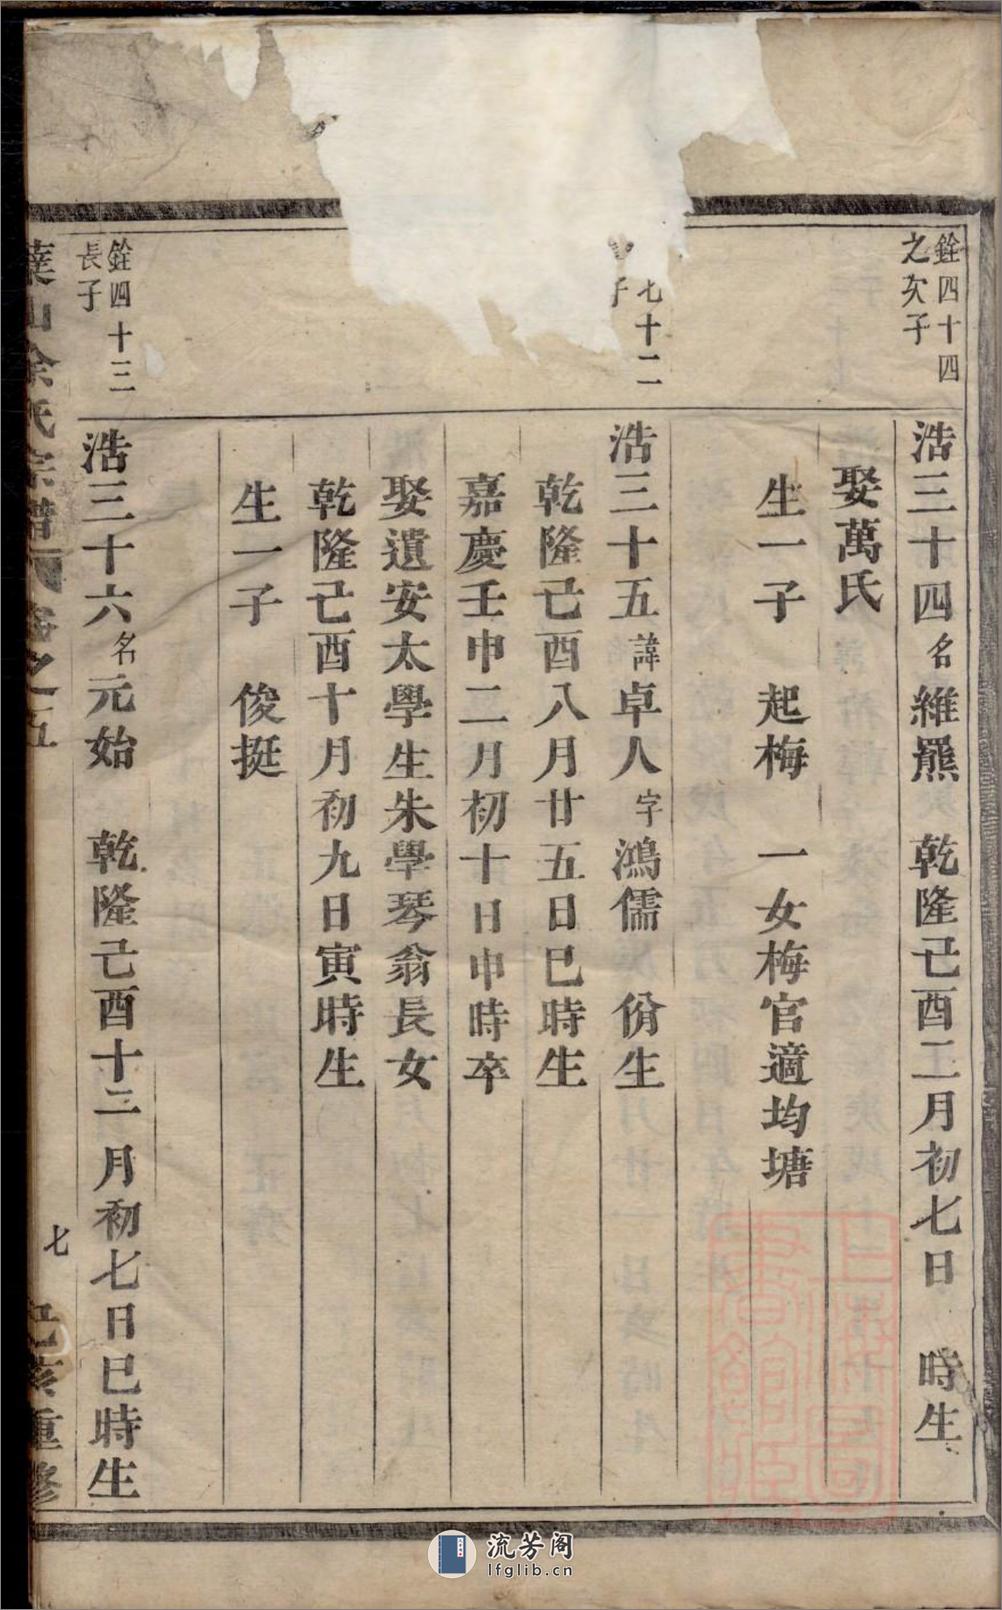 銓四十四
之次子
浩三十四名維羆 乾隆己酉二月初七日 時生
娶萬氏
生一子 起梅 一女梅官適均塘
七十二
子
浩三十五諱卓人字鴻儒 份生
乾隆己酉八月廿五日巳時生
嘉慶壬申二月初十日申時卒
娶遺安太學生朱學琴翁長女
乾隆己酉十月初九日寅時生
生一子 俊挺
銓四十三
長子
浩三十六名元始 乾隆己酉十二月初七日巳時生
山余氏宗譜 卷之五 七 己亥重修
流芳阁
lfglib.cn